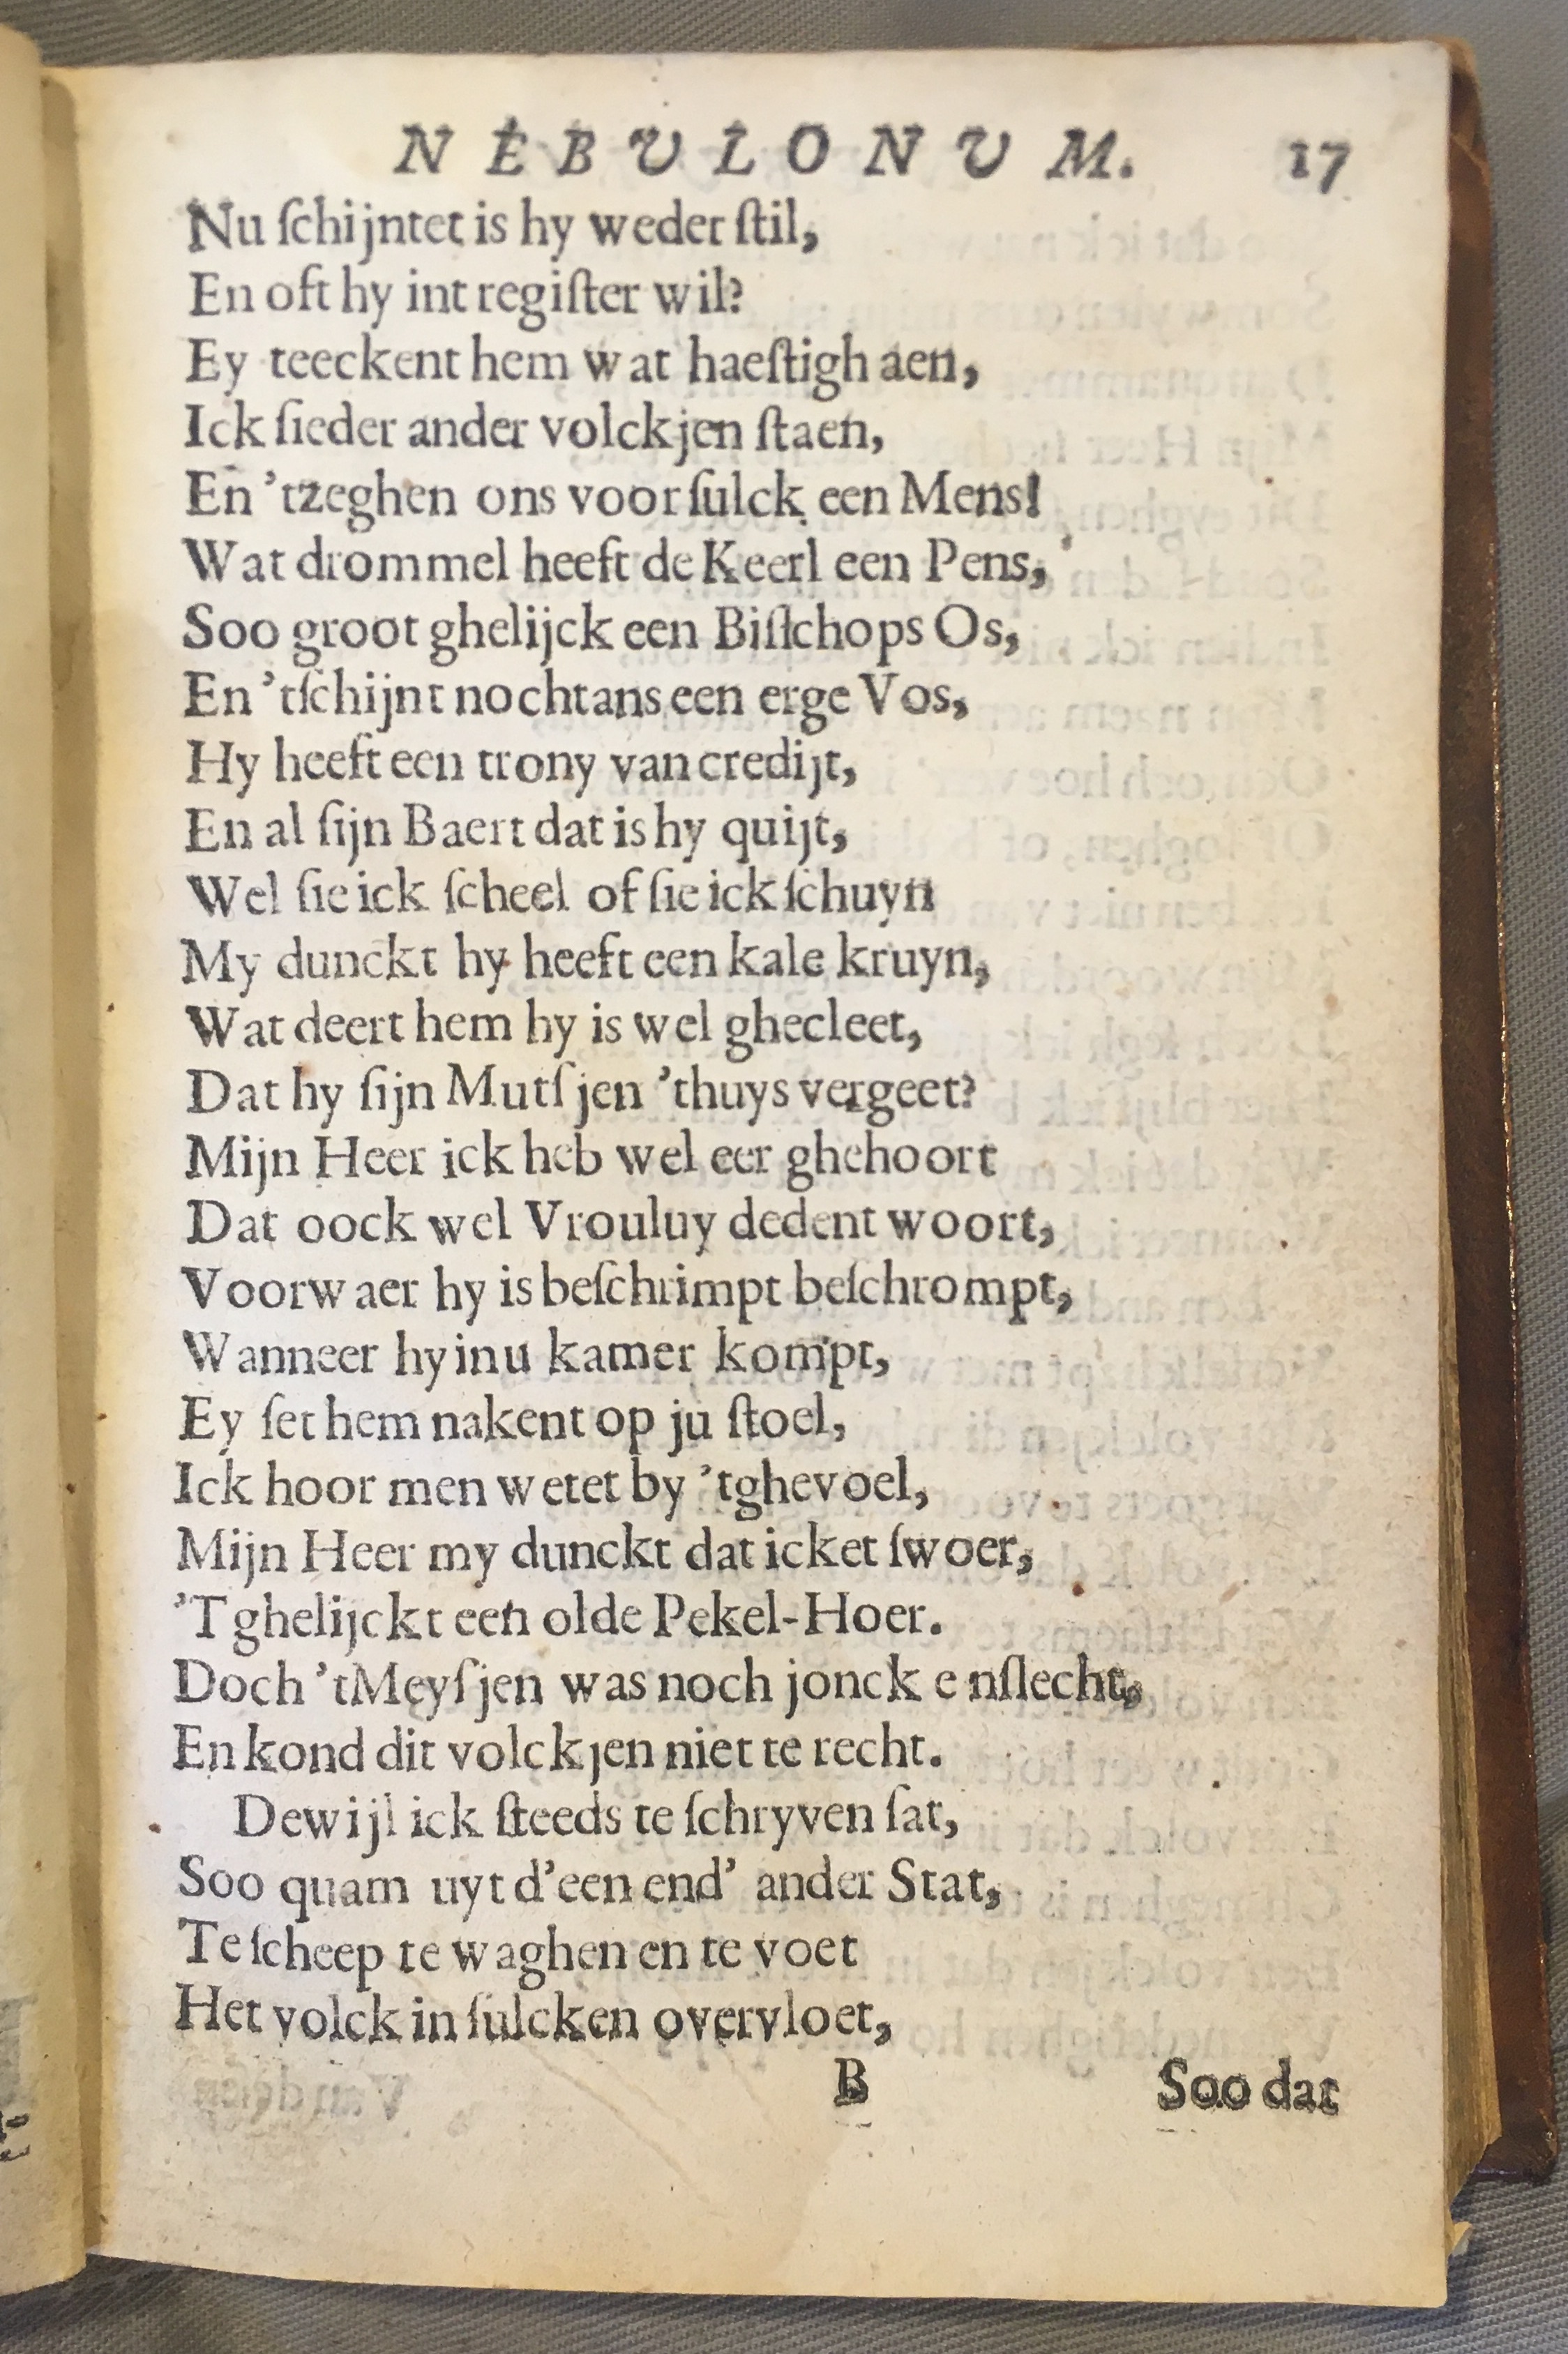 NEBULONUM. 17
Nu ſchijntet is hy weder ſtil,
En oft hy int regiſter wil?
Ey teeckent hem wat haeſtigh aen,
Ick ſieder ander volckjen ſtaen,
En 'tzeghen ons voor ſulck een Mens!
Wat drommel heeft de Keerl een Pens,
Soo groot ghelijck een Biſſchops Os,
En 'tſchijnt nochtans een erge Vos,
Hy heeft een trony van credijt,
En al ſijn Baert dat is hy quijt,
Wel ſie ick ſcheel of ſie ick ſchuyn
My dunckt hy heeft een kale kruyn,
Wat deert hem hy is wel ghecleet,
Dat hy ſijn Mutſjen 'thuys vergeet?
Mijn Heer ick heb wel eer ghehoort
Dat oock wel Vrouluy dedent woort,
Voorwaer hy is beſchrimpt beſchrompt,
Wanneer hy inu kamer kompt,
Ey ſet hem nakent op ju ſtoel,
Ick hoor men wetet by 'tghevoel,
Mijn Heer my dunckt dat icket ſwoer,
'Tghelijckt een olde Pekel-Hoer.
Doch 'tMeyſjen was noch jonck e nſlecht,
En kond dit volckjen niet te recht.
Dewijl ick ſteeds te ſchryven ſat,
Soo quam uyt d'een end' ander Stat,
Te ſcheep te waghen en te voet
Het volck in ſulcken overvloet,
B Soo dat